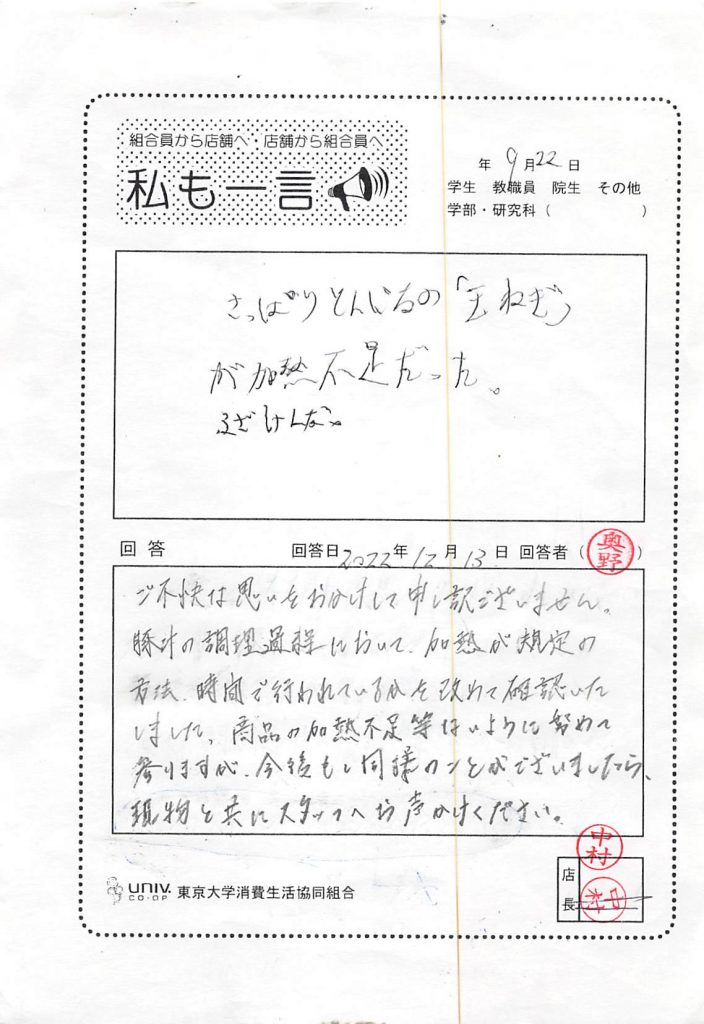 組合員から店舗へ・店舗から組合員へ
私も一言
年 9月22日
学生 教職員 院生 その他
学部・研究科（ ）
さっぱりとんじるの「玉ねぎ」
が加熱不足だった。
ふざけんな。
回答 回答日 2022年 12月 13日 回答者（奥野）
ご不快な思いをおかけして申し訳ございません。
豚汁の調理過程において、加熱が規定の
方法、時間で行われているかを改めて確認いた
しました。商品の加熱不足等ないように努めて
参りますが、今後もし同様のことがございましたら、
現物と共にスタッフへお声かけください。
中村
店長 中村
UNIV. CO-OP 東京大学消費生活協同組合